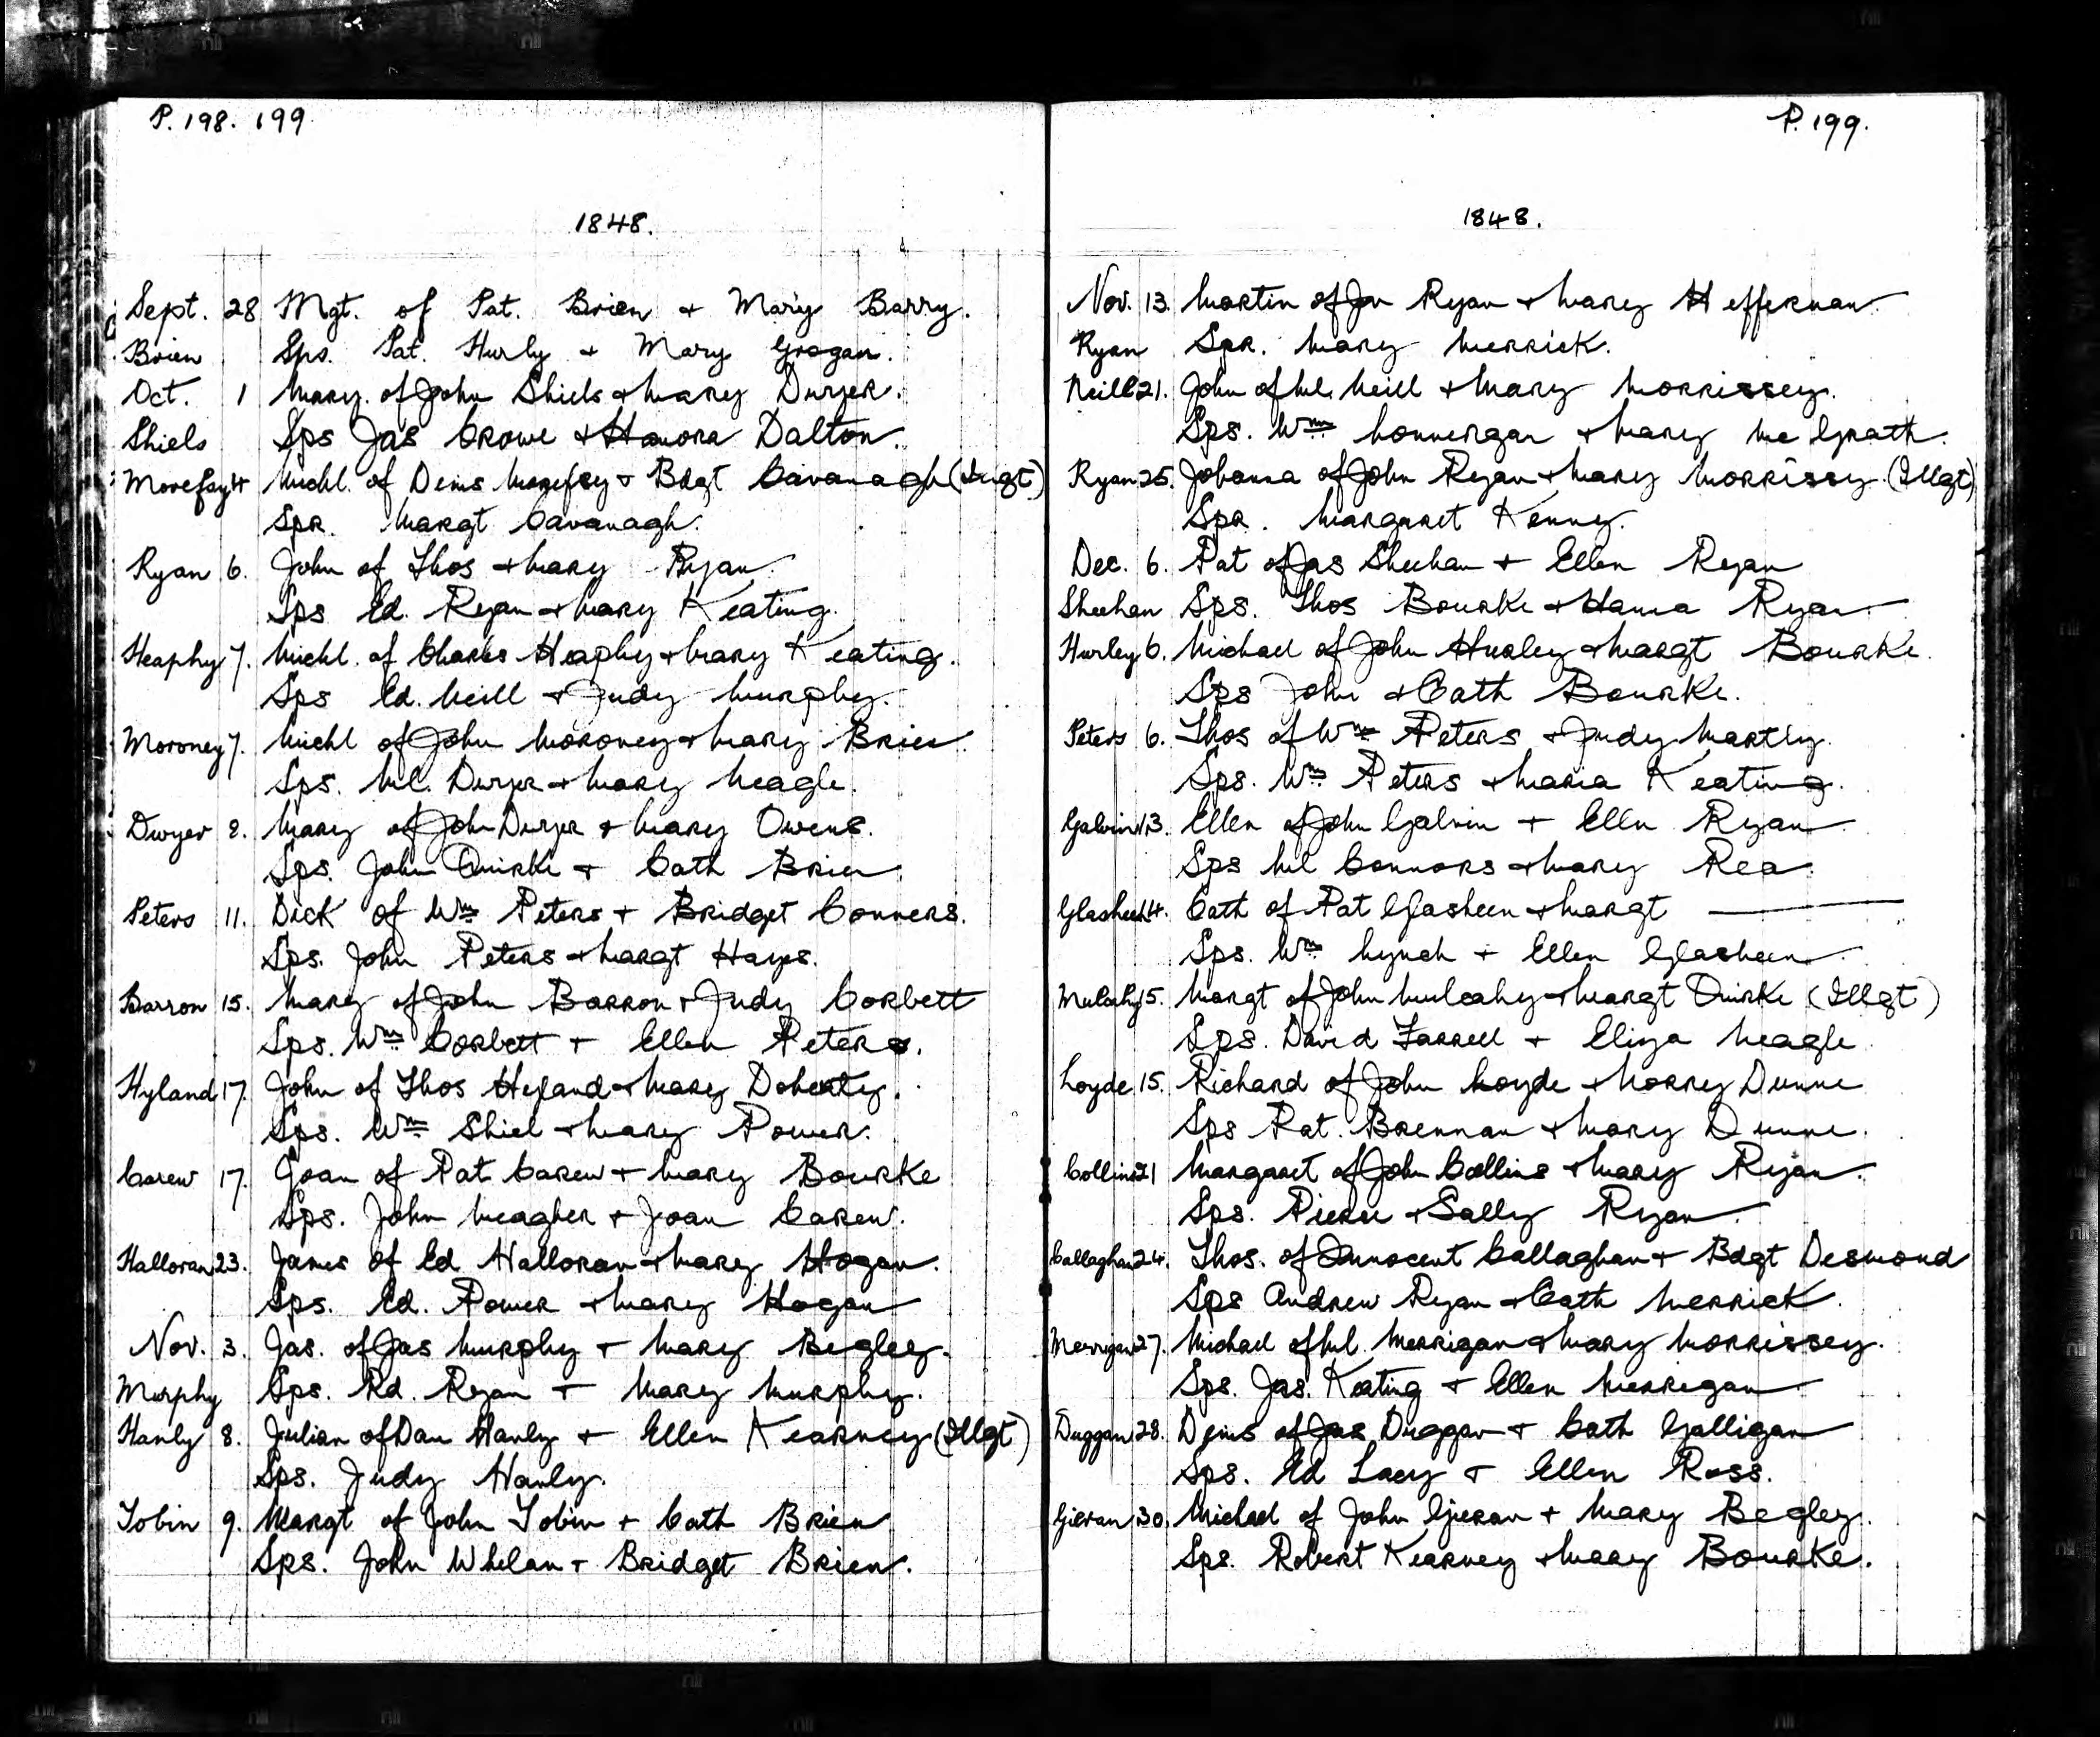 P. 198. 199
1848.
Sept. 28 Mgt. of Pat. Brien + Mary Barry.
Brien Sps. Pat. Hurly + Mary Grogan.
Oct. 1 Mary. of John Shiels + Mary Dwyer.
Shiels Sps Jas Crowe + Honora Dalton.
4 Michl. of Denis + Bdgt Cavanagh
Spr. Margt Cavanagh.
Ryan 6. John of Thos + Mary Ryan.
Sps Ed. Ryan + Mary Keating.
Heaphy 7. Michl. of Charles Heaphy + Mary Keating.
Sps Ed. Neill + Judy Murphy.
Moroney 7. Michl of John Moroney + Mary Brien
Sps. Ml. Dwyer + Mary Meagle.
Dwyer 8. Mary of John Dwyer + Mary Owens.
Sps. John Quirke + Cath Brien
Peters 11. Dick of Wm Peters + Bridget Conners.
Sps. John Peters + Margt Hayes.
Barron 15. Mary of John Barron + Judy Corbett
Sps. Wm Corbett + Ellen Peters.
Hyland 17. John of Thos Hyland + Mary Doherty.
Sps. Wm Shiel + Mary Power.
Carew 17. Joan of Pat Carew + Mary Bourke
Sps. John Meagher + Joan Carew.
Halloran 23. James of Ed Halloran + Mary Hogan.
Sps. Ed. Power + Mary Hogan
Nov. 3. Jas. of Jas Murphy + Mary Begley.
Murphy Sps. Rd. Ryan + Mary Murphy.
Hanly 8. Julian of Dan Hanly + Ellen Kearney (Illgt)
Sps. Judy Hanly.
Tobin 9. Margt of John Tobin + Cath Brien
Sps. John Whelan + Bridget Brien.
P. 199.
1848.
Nov. 13. Martin of Jn Ryan + Mary Heffernan.
Ryan Spr. Mary Merrick.
Neill 21. John of Ml. Neill + Mary Morrissey.
Sps. Wm Lonnergan + Mary Mc Grath.
Ryan 25. Johanna of John Ryan + Mary Morrissy (Illgt)
Spr. Margaret Kenny.
Dec. 6. Pat of Jas Sheehan + Ellen Ryan
Sheehan Sps. Thos Bourke + Hanna Ryan.
Hurley 6. Michael of John Hurley + Margt Bourke.
Sps John + Cath Bourke.
Peters 6. Thos of Wm Peters + Judy Martin.
Sps. Wm Peters + Maria Keating.
Galvin 13. Ellen of John Galvin + Ellen Ryan
Sps Ml Connors + Mary Rea.
Glasheen 14. Cath of Pat Glasheen + Margt ———
Sps. Wm Lynch + Ellen Glasheen.
Mulcahy 15. Margt of John Mulcahy + Margt Quirke (Illgt)
Sps. David Farrell + Eliza Meagle.
Loyde 15. Richard of John Loyde + Norrey Dunne
Sps Pat. Brennan + Mary Dunne.
Collins 21 Margaret of John Collins + Mary Ryan.
Sps. Pierse + Sally Ryan.
Callaghan 24. Thos. of Innocent Callaghan + Bdgt Desmond
Sps Andrew Ryan + Cath Merrick.
Merrigan 27. Michael of Ml. Merrigan + Mary Morrissey.
Sps. Jas. Keating + Ellen Merrigan
Duggan 28. Denis of Jas Duggan + Cath Galligan
Sps. Ed Lacy + Ellen Ross.
Gieran 30. Michael of John Gieran + Mary Begley.
Sps. Robert Kearney + Mary Bourke.